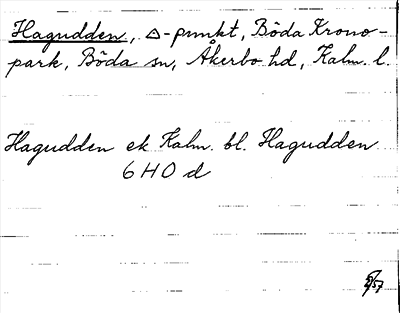 Hagudden, △-punkt, Böda Krono-
park, Böda sn, Åkerbo hd, Kalm. l.
Hagudden ek Kalm. bl. Hagudden
6 H O d